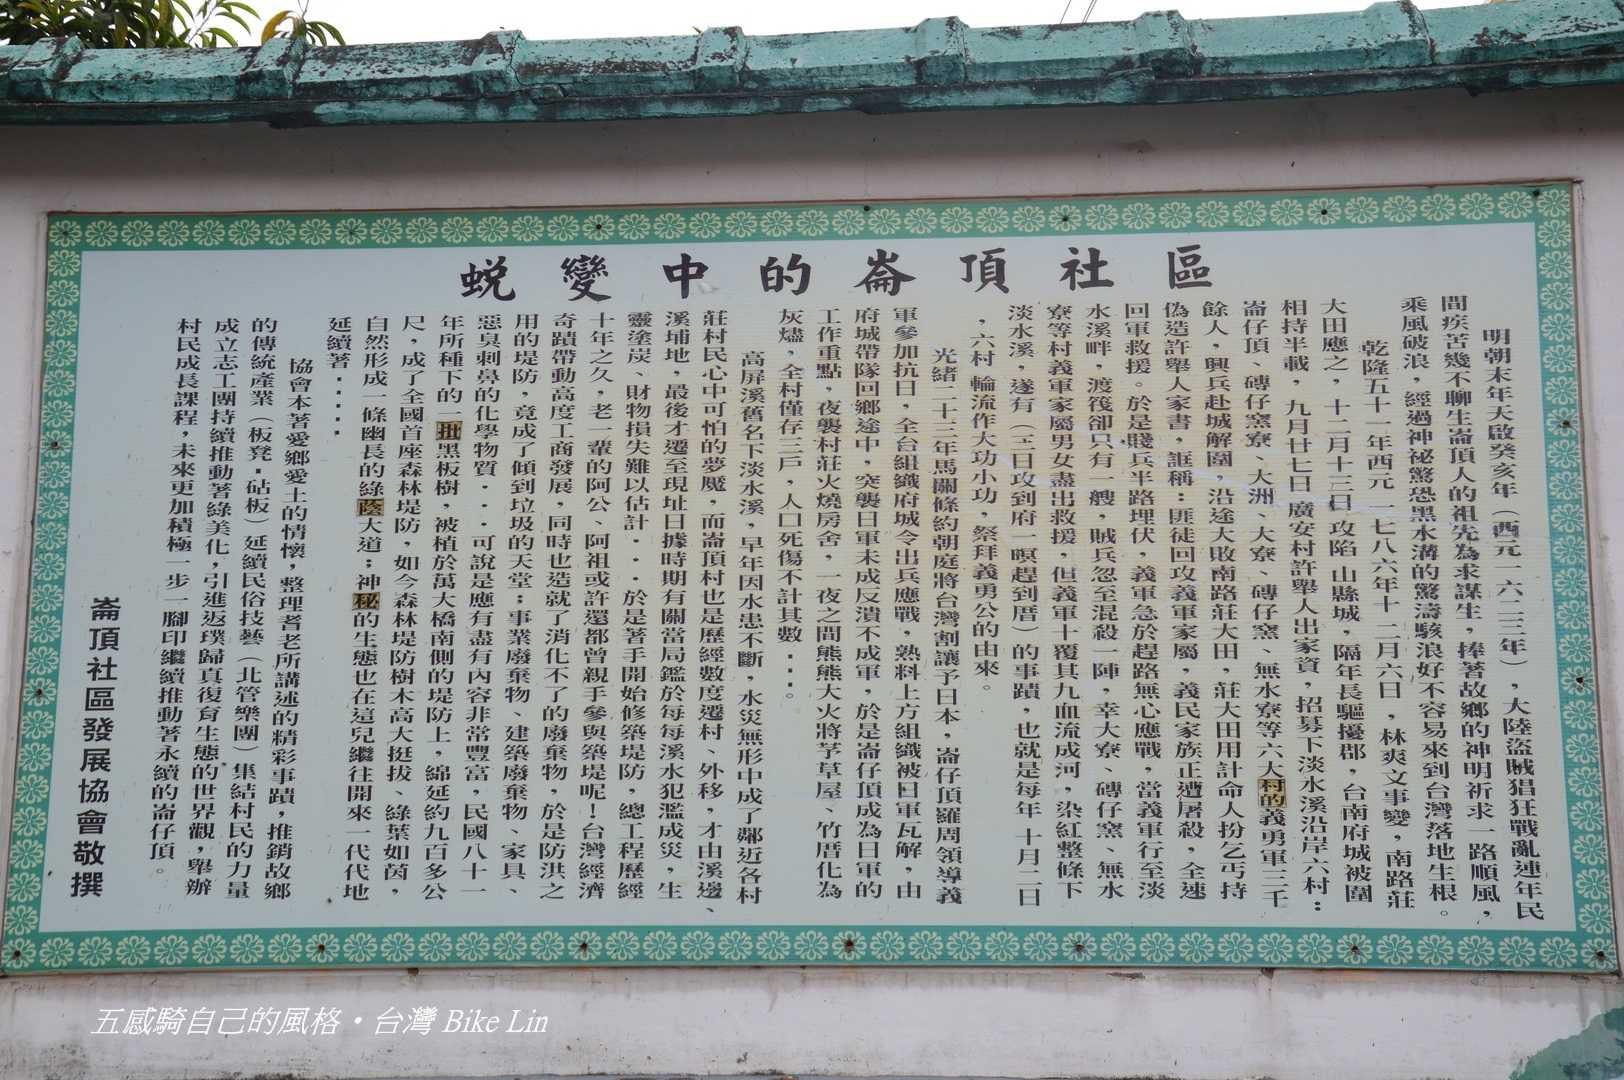 蛻變中的崙頂社區
明朝末年天啟癸亥年（西元一六二三年），大陸盜賊猖狂戰亂連年民
間疾苦幾不聊生崙頂人的祖先為求謀生，捧著故鄉的神明祈求一路順風，
乘風破浪，經過神祕驚恐黑水溝的驚濤駭浪好不容易來到台灣落地生根。
乾隆五十一年西元一七八六年十二月六日，林爽文事變，南路莊
大田應之，十二月十三日攻陷山縣城，隔年長驅擾郡，台南府城被圍
相持半載，九月廿七日廣安村許舉人出家資，招募下淡水溪沿岸六村：
崙仔頂、磚仔窯寮、大洲、大寮、磚仔窯、無水寮等六大村的義勇軍三千
餘人，興兵赴城解圍，沿途大敗南路莊大田，莊大田用計命人扮乞丐持
偽造許舉人家書，誆稱：匪徒回攻義軍家屬，義民家族正遭屠殺，全速
回軍救援。於是賤兵半路埋伏，義軍急於趕路無心應戰，當義軍行至淡
水溪畔，渡筏卻只有一艘，賊兵忽至混殺一陣，幸大寮、磚仔窯、無水
寮等村義軍家屬男女盡出救援，但義軍十覆其九血流成河，染紅整條下
淡水溪，遂有（三日攻到府一暝趕到厝）的事蹟，也就是每年十月二日
，六村輪流作大功小功，祭拜義勇公的由來。
光緒二十三年馬關條約朝庭將台灣割讓予日本，崙仔頂羅周領導義
軍參加抗日，全台組織府城令出兵應戰，熟料上方組織被日軍瓦解，由
府城帶隊回鄉途中，突襲日軍未成反潰不成軍，於是崙仔頂成為日軍的
工作重點，夜襲村莊火燒房舍，一夜之間熊熊大火將茅草屋、竹厝化為
灰燼，全村僅存三戶，人口死傷不計其數...。
高屏溪舊名下淡水溪，早年因水患不斷，水災無形中成了鄰近各村
莊村民心中可怕的夢魘，而崙頂村也是歷經數度遷村、外移，才由溪邊、
溪埔地，最後才遷至現址日據時期有關當局鑑於每每溪水犯濫成災，生
靈塗炭、財物損失難以估計...於是著手開始修築堤防，總工程歷經
十年之久，老一輩的阿公、阿祖或許還都曾親手參與築堤呢！台灣經濟
奇蹟帶動高度工商發展，同時也造就了消化不了的廢棄物，於是防洪之
用的堤防，竟成了傾到垃圾的天堂；事業廢棄物、建築廢棄物、家具、
惡臭刺鼻的化學物質...可說是應有盡有內容非常豐富，民國八十一
年所種下的一批黑板樹，被植於萬大橋南側的堤防上，綿延約九百多公
尺，成了全國首座森林堤防，如今森林堤防樹木高大挺拔、綠葉如茵，
自然形成一條幽長的綠蔭大道；神秘的生態也在這兒繼往開來一代代地
延續著.....
協會本著愛鄉愛土的情懷，整理耆老所講述的精彩事蹟，推銷故鄉
的傳統產業（板凳．砧板）延續民俗技藝（北管樂團）集結村民的力量
成立志工團持續推動著綠美化，引進返璞歸真復育生態的世界觀，舉辦
村民成長課程，未來更加積極一步一腳印繼續推動著永續的崙仔頂。
崙頂社區發展協會敬撰
五感騎自己的風格‧台灣 Bike Lin